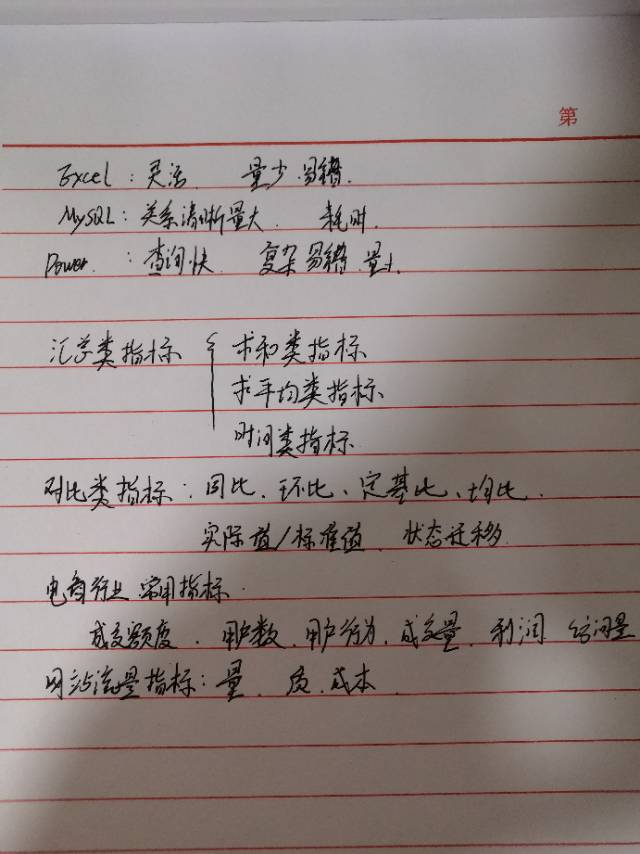 第
Excel：灵活 量少 易错.
MySQL：关系清晰量大 耗时.
Power ：查询快 复杂易错 量大
汇总类指标 { 求和类指标
求平均类指标
时间类指标
对比类指标：同比、环比、定基比、均比.
实际值/标准值、状态迁移
电商行业 常用指标.
成交额度、用户数、用户行为、成交量、利润、访问量
网站流量指标：量、质、成本.